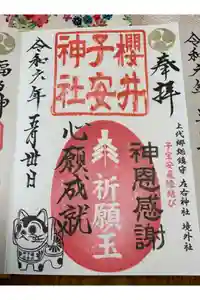 奉拝
櫻井
子安
神社
令和六年
五月卅日
上代郷総鎮守 左右神社 境外社
子宝安産縁結び
神恩感謝
祈願玉
心願成就